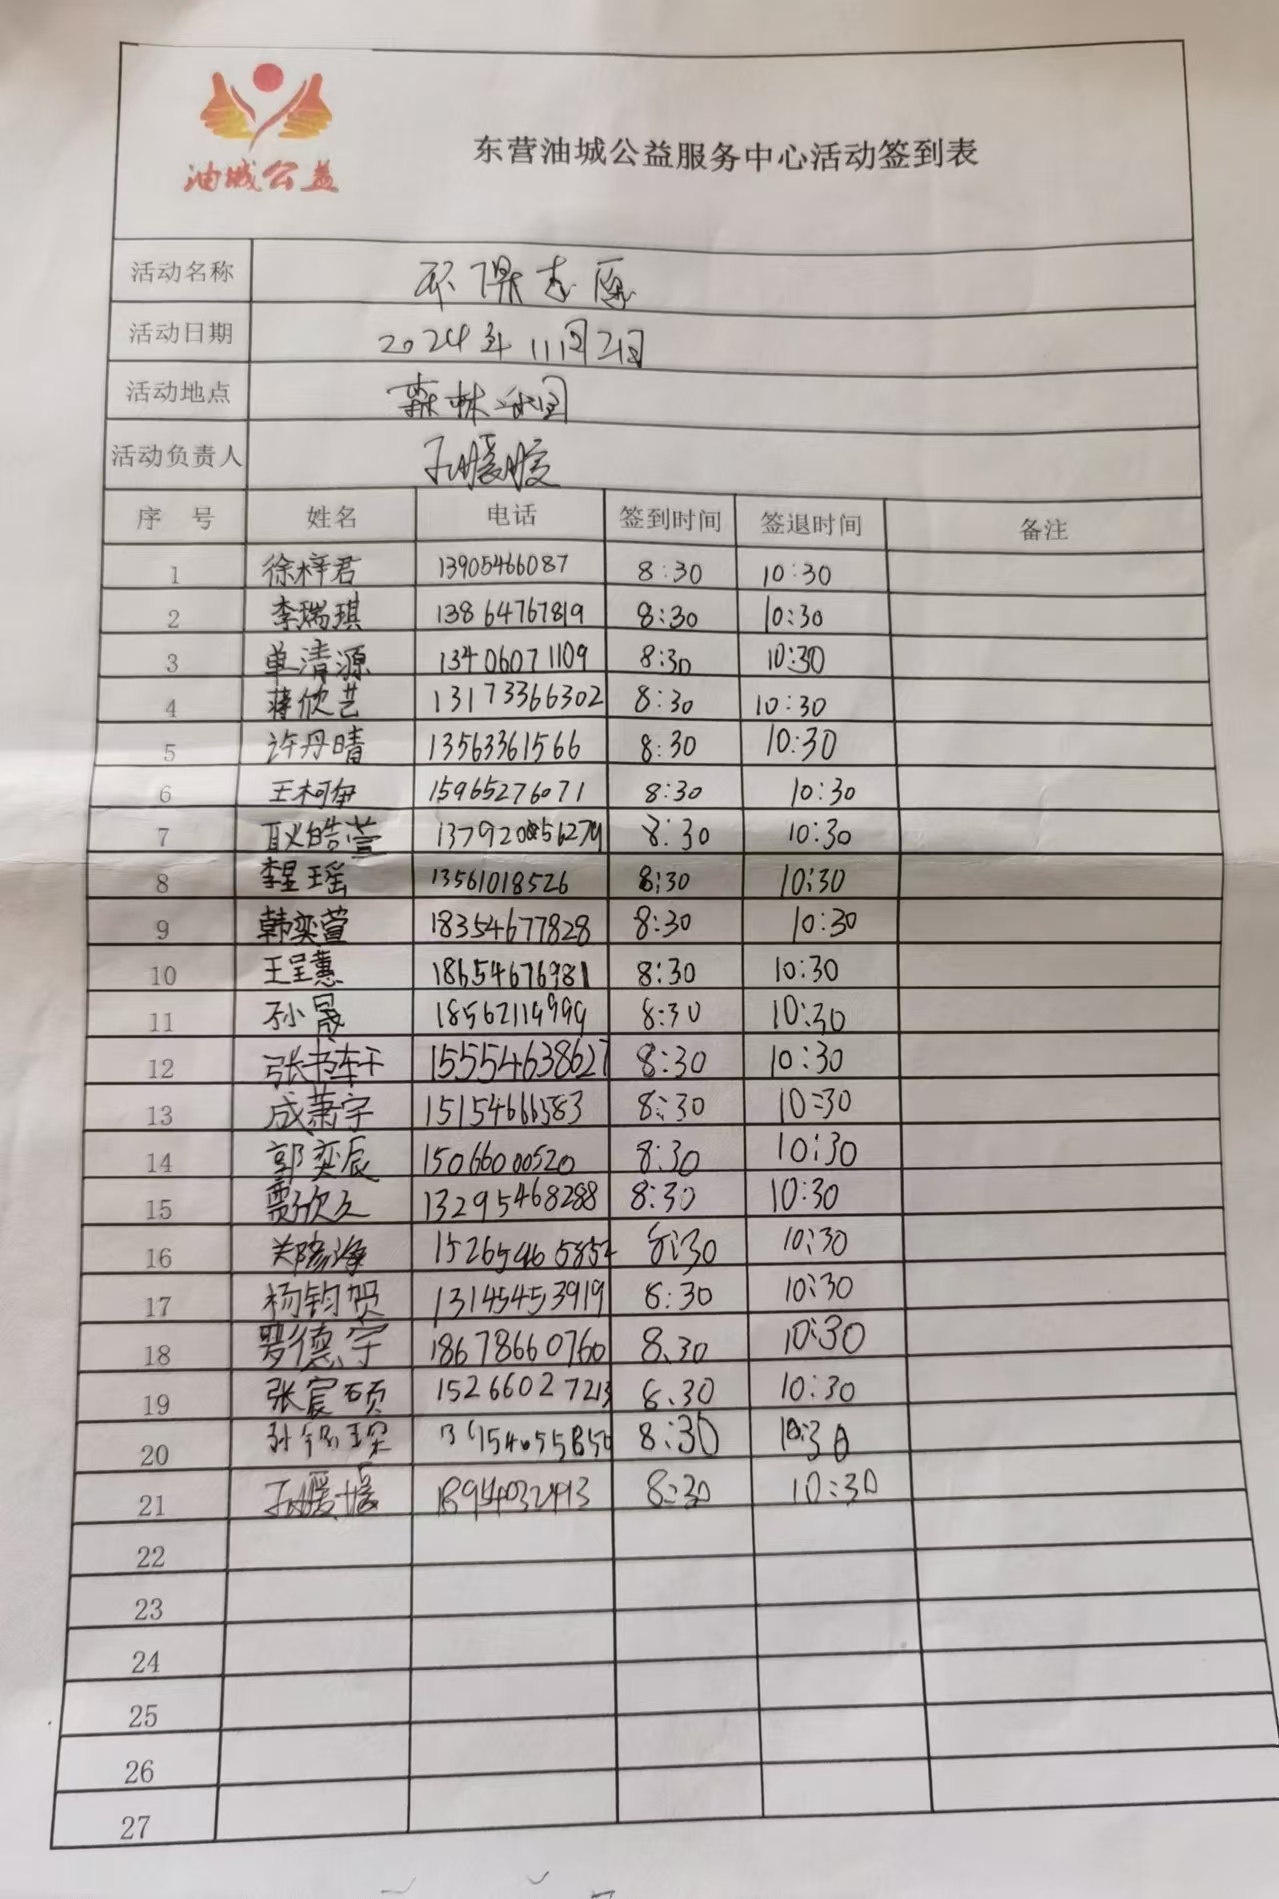 油城公益
东营油城公益服务中心活动签到表
活动名称 环保志愿
活动日期 2024年11月2日
活动地点 森林公园
活动负责人 孙媛媛
序 号 姓名 电话 签到时间 签退时间 备注
1 徐梓君 13905466087 8:30 10:30
2 李瑞琪 13864767819 8:30 10:30
3 单清源 13406071109 8:30 10:30
4 蒋欣艺 13173366302 8:30 10:30
5 许丹晴 13563361566 8:30 10:30
6 王柯伊 15965276071 8:30 10:30
7 耿皓萱 8:30 10:30
8 李星瑶 13561018526 8:30 10:30
9 韩奕萱 18354677828 8:30 10:30
10 王呈蕙 18654676981 8:30 10:30
11 孙晟 18562119999 8:30 10:30
12 张书轩 15554638627 8:30 10:30
13 成萧宇 15154666583 8:30 10:30
14 郭奕辰 15066000520 8:30 10:30
15 贾欣久 13295468288 8:30 10:30
16 8:30 10:30
17 杨钧贺 13145453919 8:30 10:30
18 罗德宇 18678660760 8:30 10:30
19 张宸硕 15266027213 8.30 10:30
20 8:30 10:30
21 孙媛媛 8:30 10:30
22
23
24
25
26
27